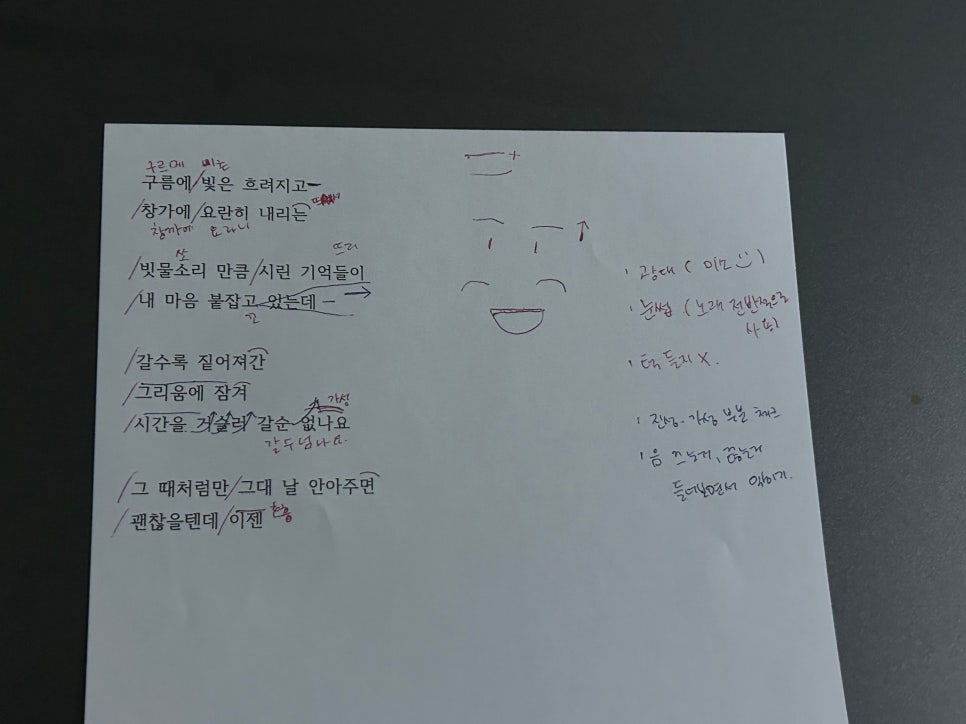 구르메 비츤
구름에/빛은 흐려지고
/창가에/요란히 내리는
창까에 요라니
쏘 뜨리
/빗물소리 만큼/시린 기억들이
/내 마음 붙잡고 있는데
꼬
/갈수록 짙어져간
/그리움에 잠겨
가성
/시간을 거슬러 갈순 없나요
갈쑤 넘나요.
/그 때처럼만/그대 날 안아주면
/괜찮을텐데/이젠
· 광대 ( 미소 )
· 눈썹 ( 노래 전반적으로
사용)
· 턱 들지 X.
· 진성. 가성 부분 체크
· 음 끄는거, 끊는거
들어보면서 익히기.